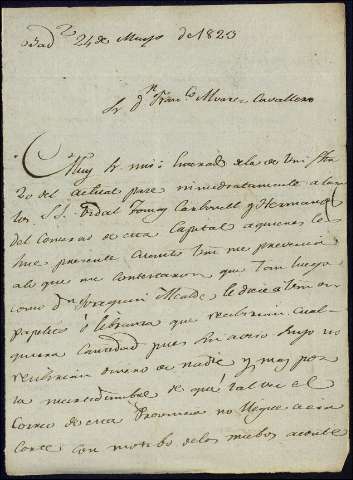 24 de Mayo de 1823
Sr Dn Franco Alvarez Cavallero
Muy Sr mio: Enterado de la de Vm. fha
20 del actual pase inmediatamente a
los SS. Vidal Carbonell y Hermano
del Comercio de esta Capital a quienes les
hice presente cuanto Vm me prevenia
a lo que me contestaron que tan luego
como Dn Joaquin Alcalde, le diese a Vm un
papelito ó libranza que recibirian cual-
quiera cantidad pues sin aviso suyo no
recibirian dinero de nadie y mas por
la incertidumbre de que tal vez el
Correo de esta Provincia no llegue a esa
Corte con motibo de los